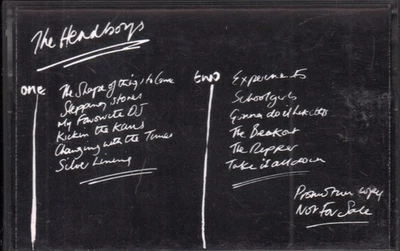 The Headboys
ONE:
The Shape of things to Come
Stepping stones
My Favourite DJ
Kickin the Kans
Changing with the Times
Silver Lining
TWO
Experiments
Schoolgirls
Gonna do it like this
The Breakout
The Ripper
Take it all down
Promotion copy
Not For Sale